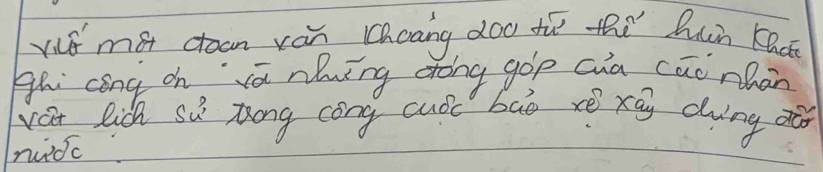 viết một đoạn văn khoảng 200 từ thể hiện khát
ghi công ơn và những đóng góp của các nhân
vật lịch sử trong công cuộc bảo vệ xây dựng đất
nước.